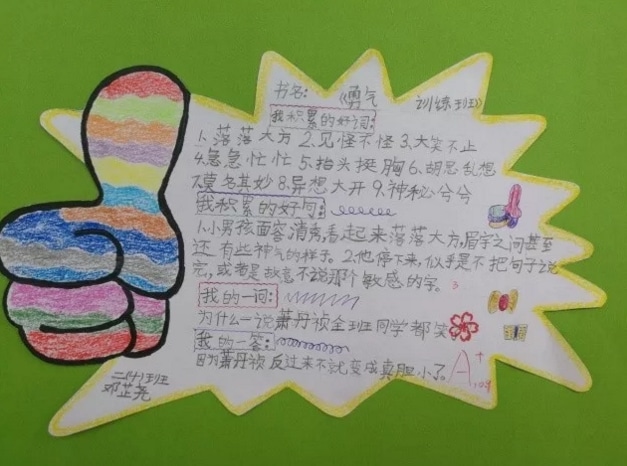 书名:《勇气训练班》
我积累的好词:
1.落落大方 2.见怪不怪 3.大笑不止
4.急急忙忙 5.抬头挺胸 6.胡思乱想
7.莫名其妙 8.异想天开 9.神秘兮兮
我积累的好句:
1.小男孩面容清秀,看起来落落大方,眉宇之间甚至
还有些神气的样子。2.他停下来,似乎是不把句子说
完,或者是故意不说那个敏感的字。
我的一问:
为什么一说萧丹祯全班同学都笑
我的一答:
因为萧丹祯反过来不就变成真胆小了。
A+
邓芷尧